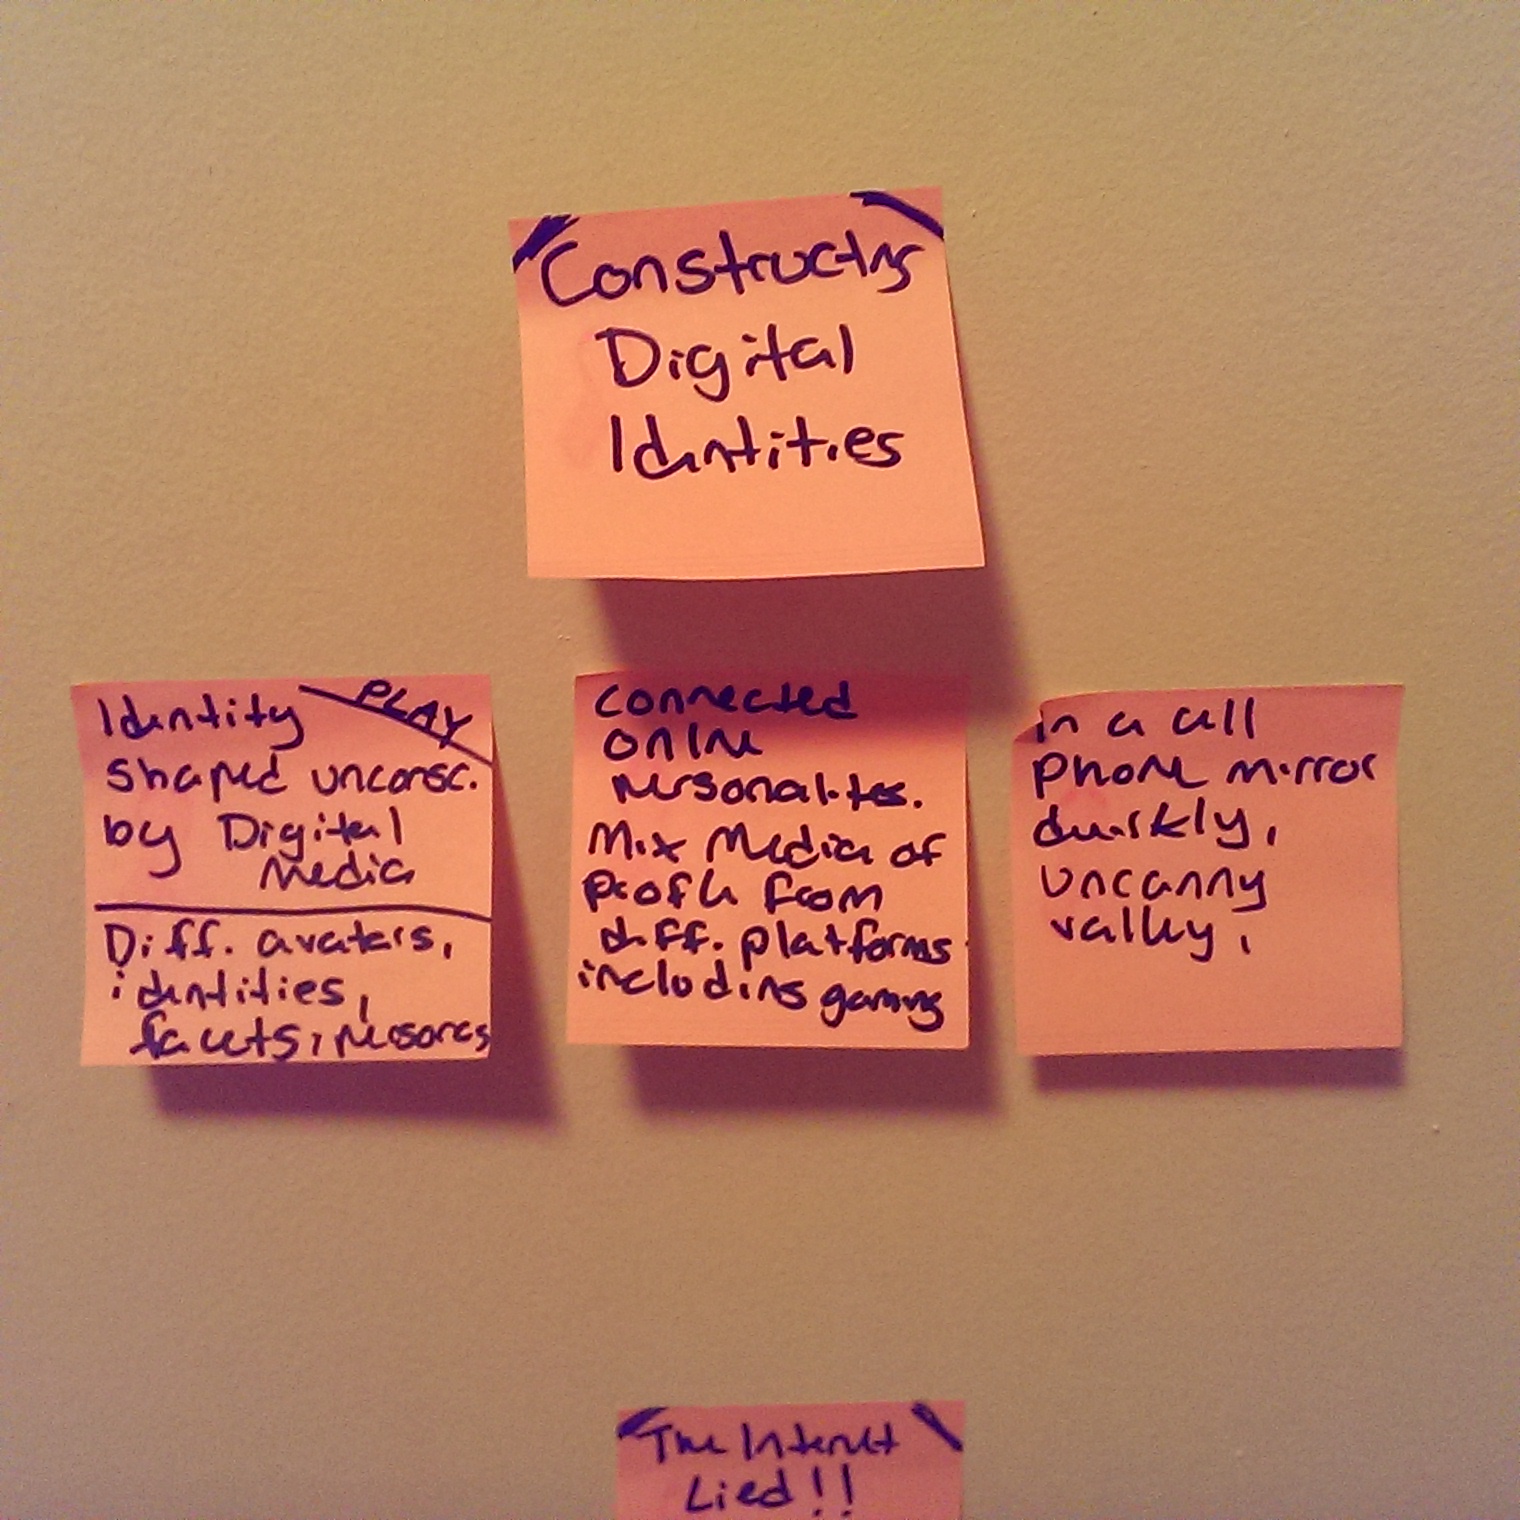 Constructng
Digital
Identities
Identity PLAY
shaped unconsc.
by Digital
Media
Diff. avatars,
identities,
facets, personas
connected
online
personalites.
Mix Media of
profle from
diff. platforms
including gaming
in a cell
phone mirror
darkly,
uncanny
valley,
The Internet
Lied!!